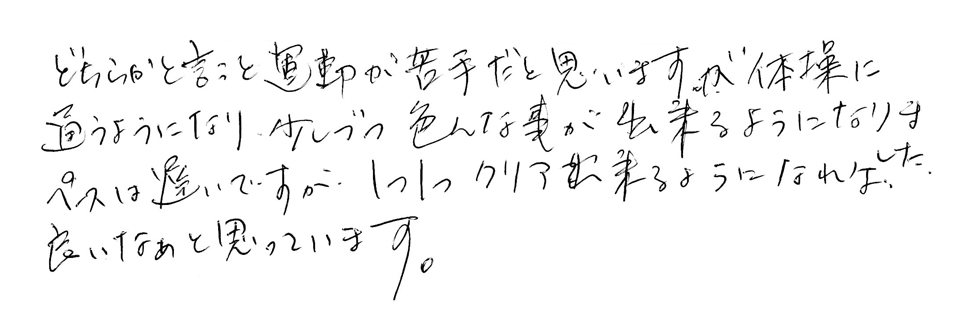 どちらかと言うと運動が苦手だと思いますが、体操に
通うようになり、少しづつ色んな事が出来るようになりま
した。
ペースは遅いですが、1つ1つクリア出来るようになれば、
良いなぁと思っています。